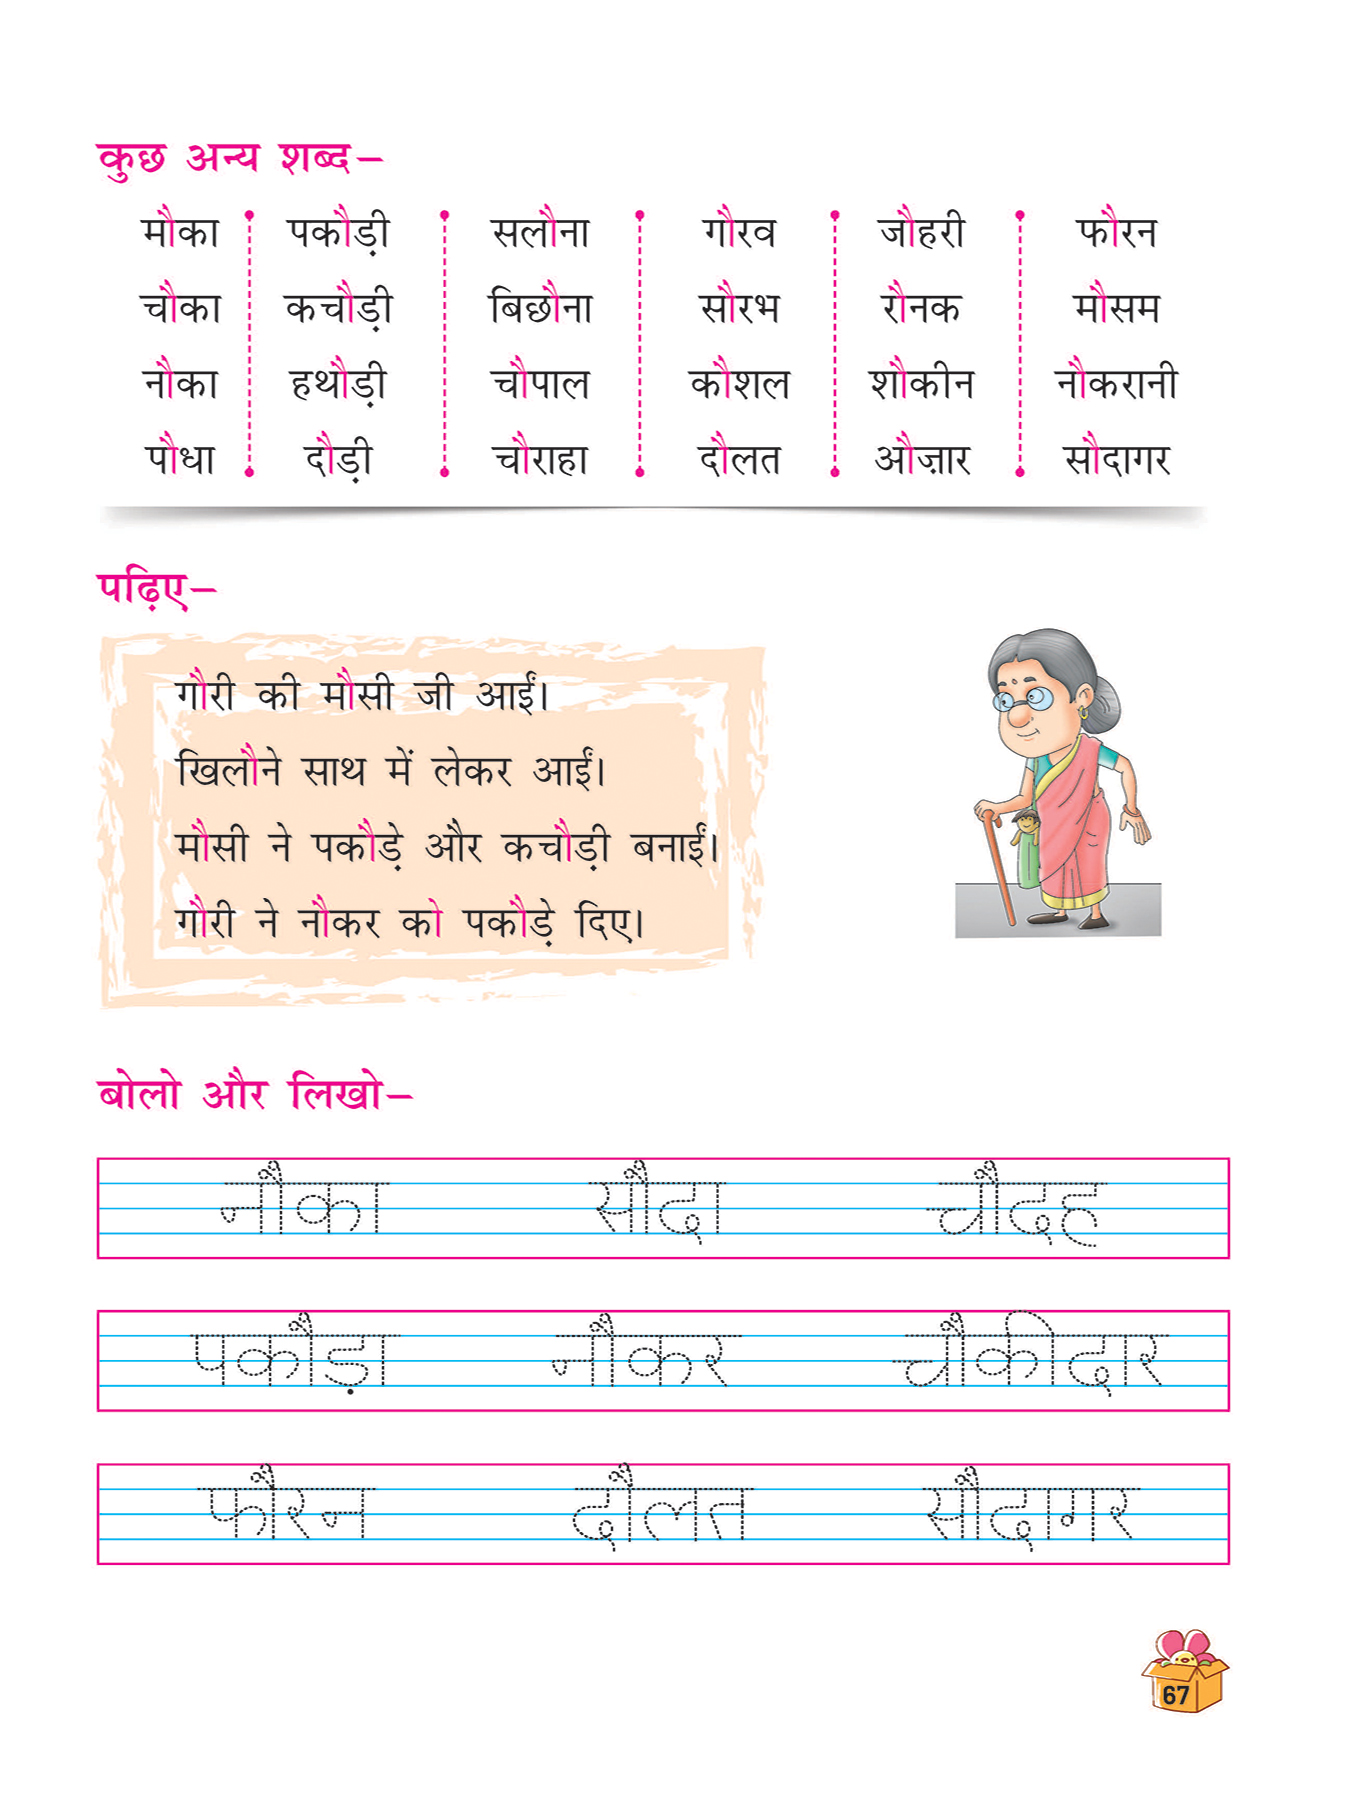 कुछ अन्य शब्द–
मौका पकौड़ी सलौना गौरव जौहरी फौरन
चौका कचौड़ी बिछौना सौरभ रौनक मौसम
नौका हथौड़ी चौपाल कौशल शौकीन नौकरानी
पौधा दौड़ी चौराहा दौलत औज़ार सौदागर
पढ़िए–
गौरी की मौसी जी आईं।
खिलौने साथ में लेकर आईं।
मौसी ने पकौड़े और कचौड़ी बनाईं।
गौरी ने नौकर को पकौड़े दिए।
बोलो और लिखो–
नौका सौदा चौदह
पकौड़ा नौकर चौकीदार
फौरन दौलत सौदागर
67